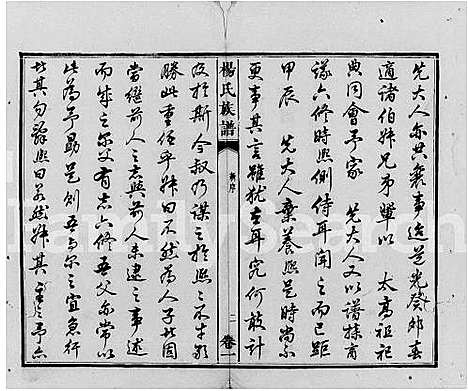 先大人亦共襄事迨光癸卯春
適諸伯叔兄弟輩以 太高祖祀
典同會予家 先大人又以譜牒商
議六修時熙側侍耳聞之而已距
甲辰 先大人棄養熙是時尚不
更事其言雖猶在耳究何敢計
楊氏族譜
新序
二
卷一
及於斯今叔乃謀之於熙之不才能
勝此重任乎叔曰不然為人子者固
當繼前人之志與前人未逮之事述
而成之爾父有志六修吾父亦常以
此為予勗是則吾與爾之宜急行
者其勿辭熙曰若然叔其董予亦
FamilySearch